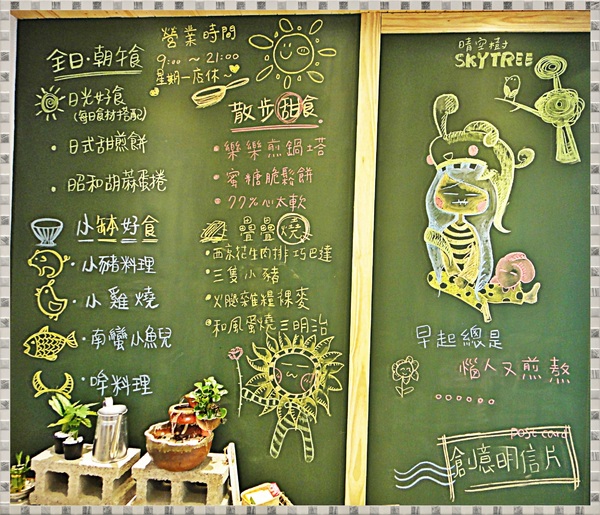 全日·朝午食
日光好食
(每日食材搭配)
·日式甜煎餅
·昭和胡蔴蛋捲
小缽好食
·小豬料理
·小雞燒
·南蠻小魚兒
·哞料理
營業時間
9:00~21:00
星期一店休
散步甜食
·樂樂煎鍋塔
·蜜糖脆鬆餅
·77%心太軟
疊疊燒
·西京花生肉排巧巴達
·三隻小豬
·火腿雜糧裸麥
·和風蛋燒三明治
晴空樹
SKYTREE
早起總是
惱人又煎熬
......
post card
創意明信片